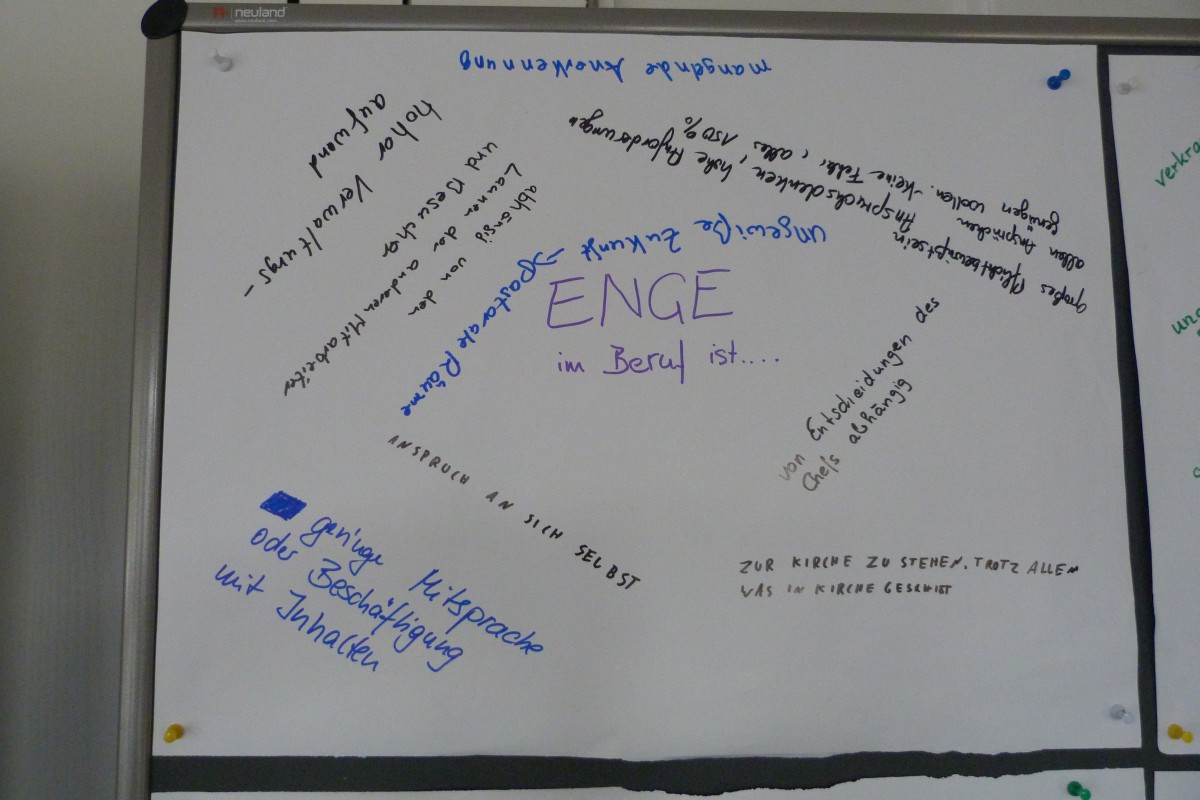 neuland
www.neuland.com
mangelnde Anerkennung
hoher Verwaltungs-
aufwand
abhängig von den
Launen der anderen Mitarbeiter
und Besucher
großes Pflichtbewußtsein
allen Ansprüchen Anspruchsdenken, hohe Anforderungen
genügen wollen. - keine Fehler, alles 150%
ungewiße Zukunft → pastorale Räume
ENGE
im Beruf ist....
von Entscheidungen des
Chefs abhängig
ANSPRUCH AN SICH SELBST
geringe Mitsprache
oder Beschäftigung
mit Inhalten
ZUR KIRCHE ZU STEHEN, TROTZ ALLEM
WAS IN KIRCHE GESCHIEHT
verkra